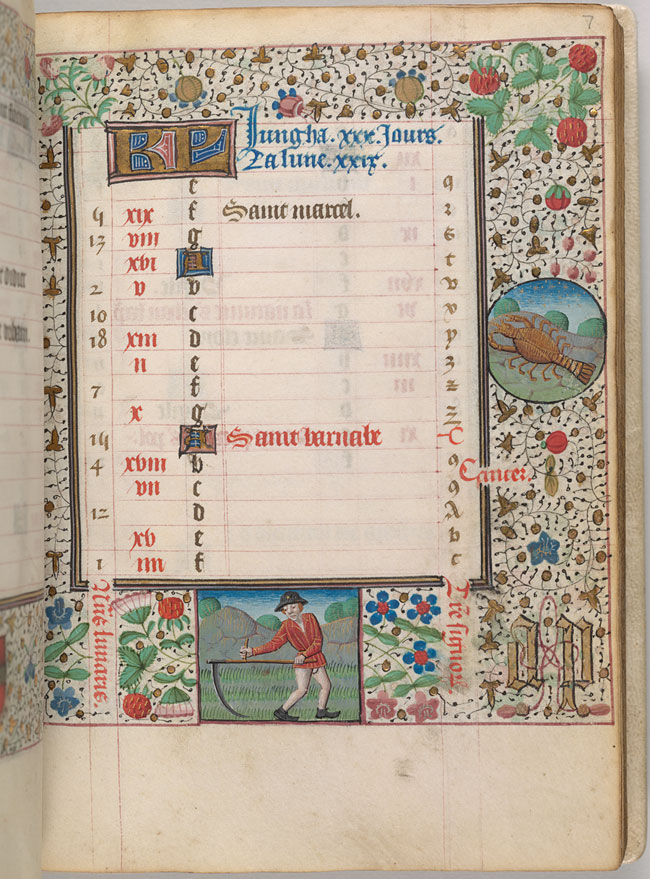 7
KL Jung ha .xxx. Jours.
La lune .xxix.
e q
xix f Saint marcel.
13 viii g
xvi A t
2 v b v
10 c x
18 xiii d y
ii e z
7 f
x g
A Saint barnabe
4 xviii b 9
Cancer.
vii c 9
12 d A
xv e b
1 iiii f c